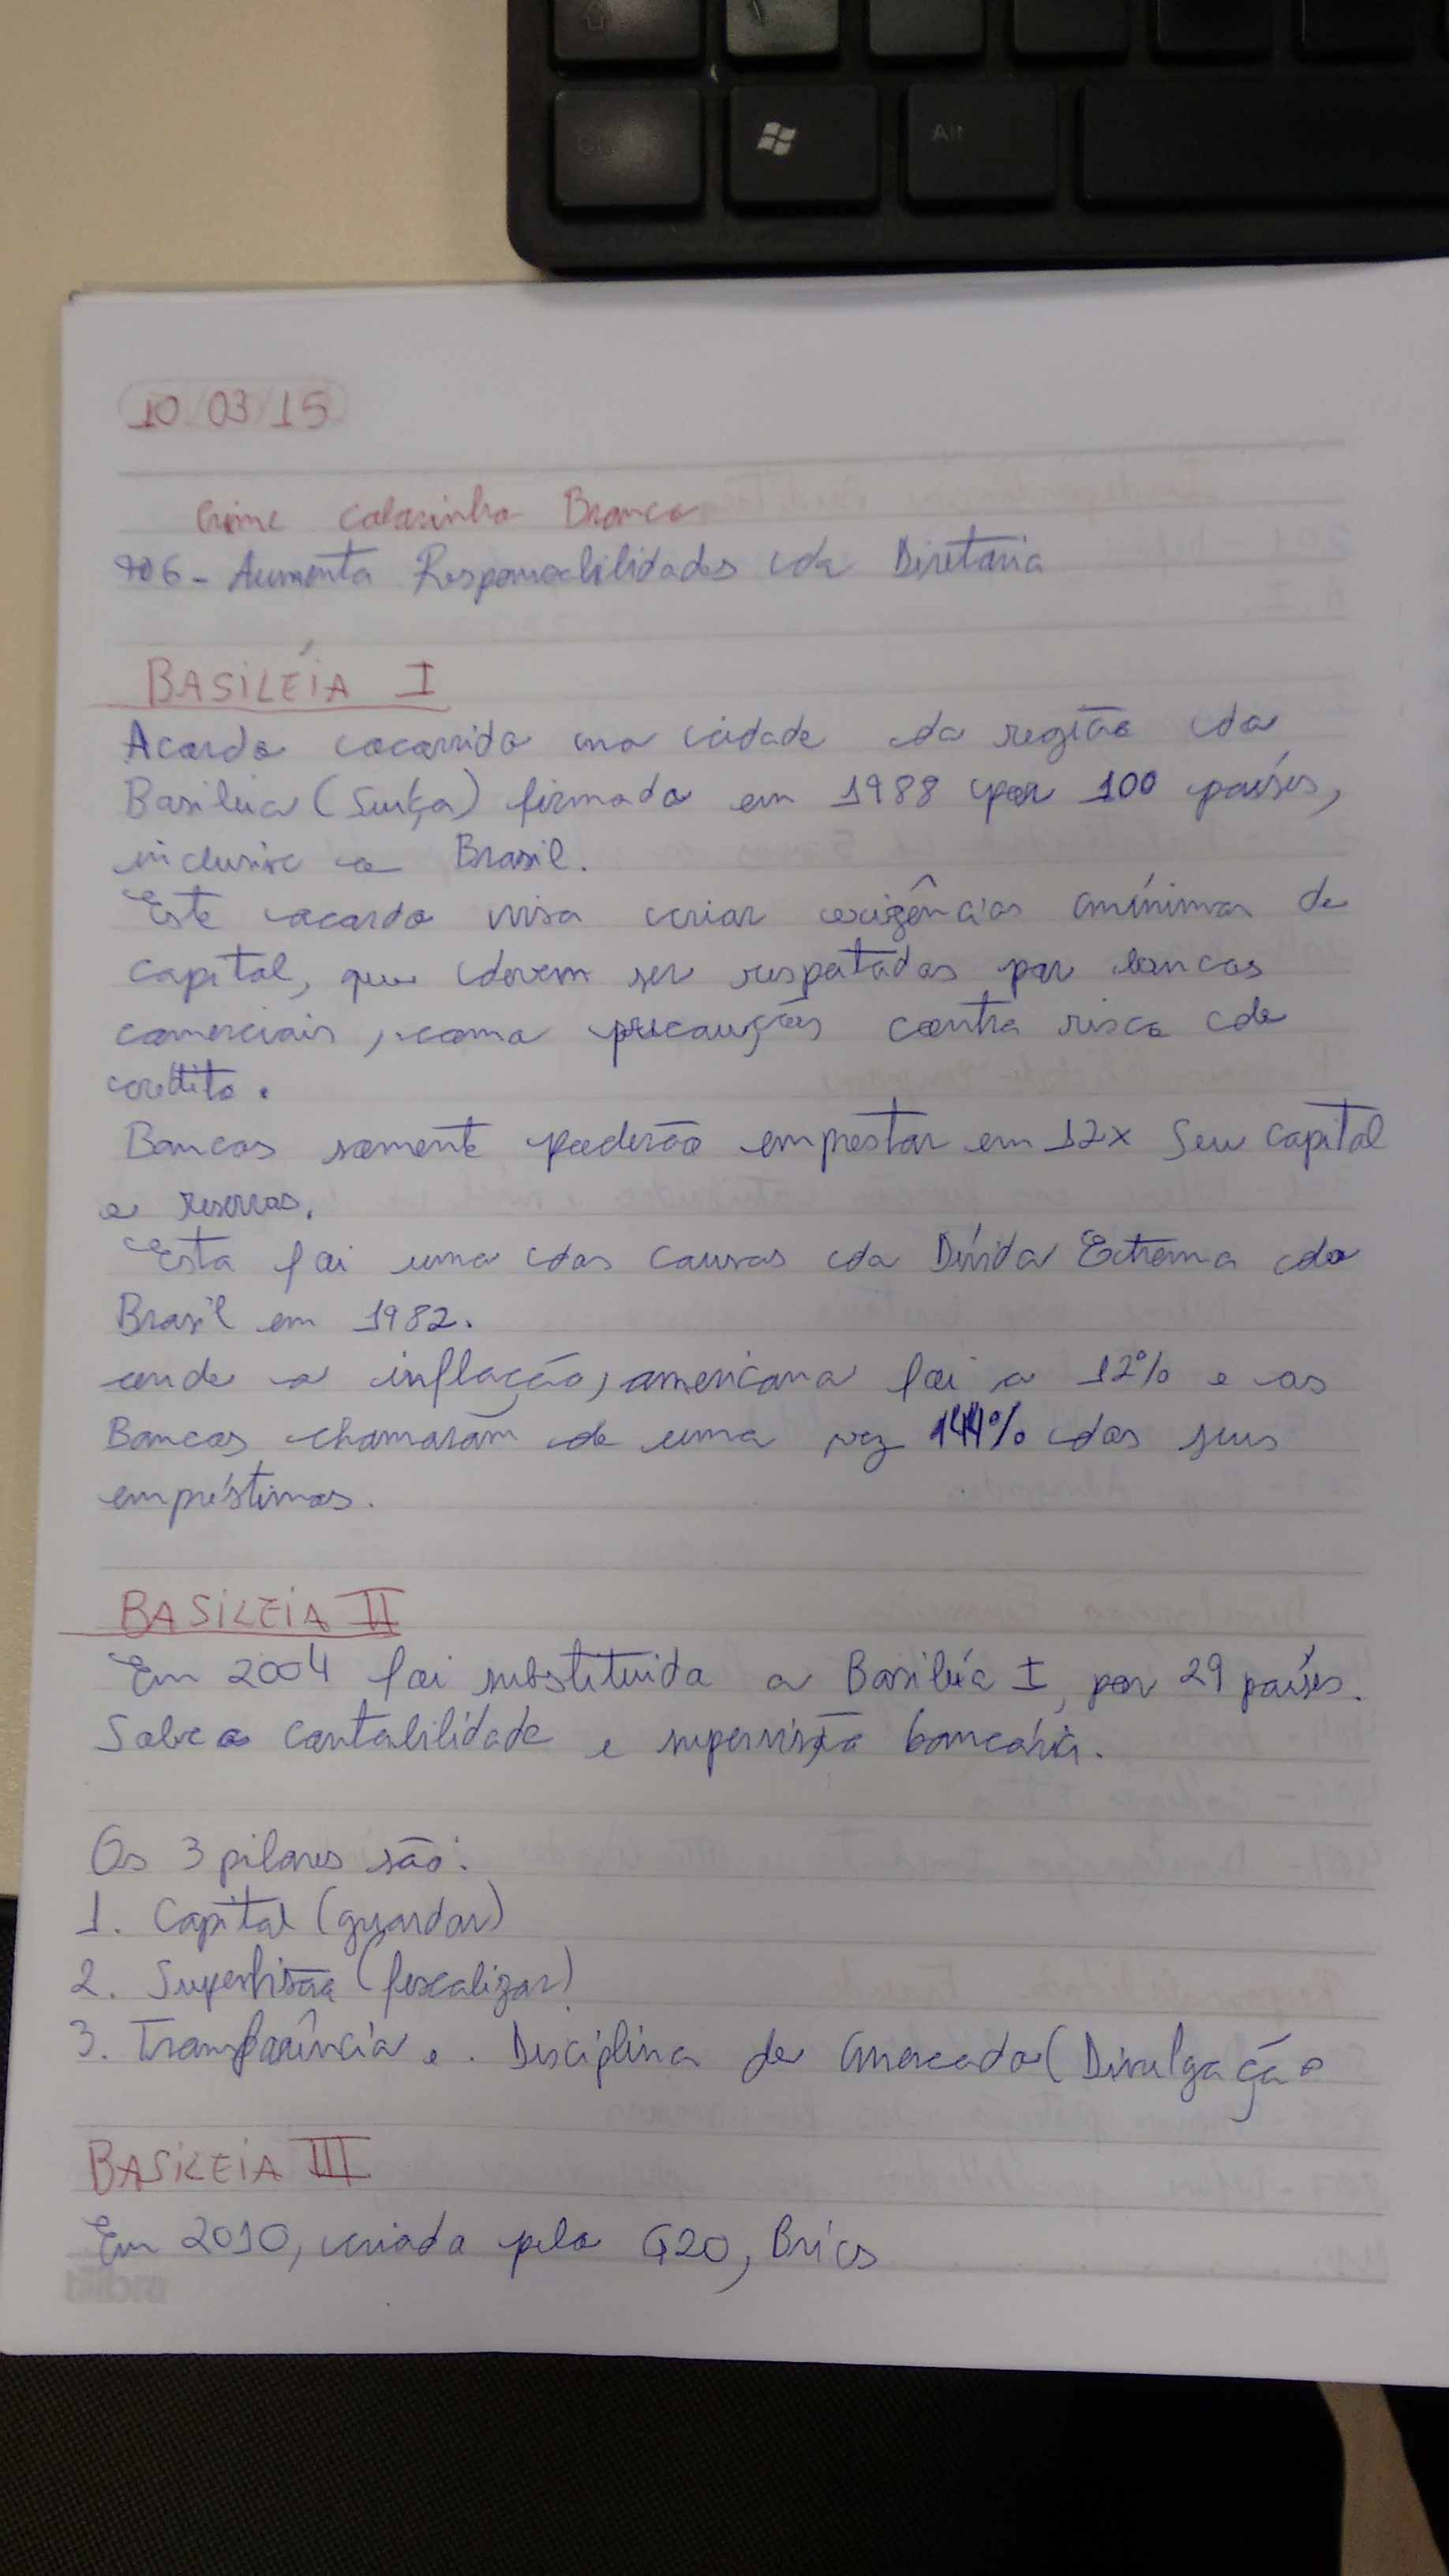 Alt
10 03 15
Crime Colarinho Branco
906 - Aumenta Responsabilidades da Diretoria
BASILÉIA I
Acordo ocorrido na cidade da região da
Basiléia (Suíça) firmado em 1988 por 100 países,
inclusive o Brasil.
Este acordo visa criar exigências mínimas de
capital, que devem ser respeitadas por bancos
comerciais, como precauções contra risco de
crédito.
Bancos somente poderão emprestar em 12x Seu Capital
e reservas.
Esta foi uma das causas da Dívida Externa do
Brasil em 1982.
onde a inflação, americana foi a 12% e os
Bancos chamaram de uma vez 144% dos seus
empréstimos.
BASILEIA II
Em 2004 foi substituida a Basiléia I, por 29 países.
Sobre a contabilidade e supervisão bancária.
Os 3 pilares são:
1. Capital (guardar)
2. Supervisão (fiscalizar)
3. Transparência e. Disciplina de Mercado (Divulgação
BASILEIA III
Em 2010, criada pelo G20, Brics
tilibra